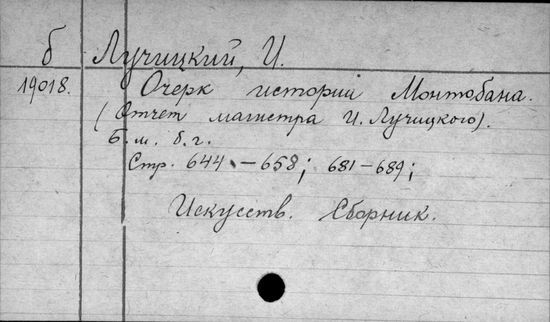 б Лучицкий, И.
19018. Очерк истории Монтобана.
(Отчет магистра И. Лучицкого).
Б. м. б. г.
Стр. 644 – 658; 681–689;
Искусств. Сборник.